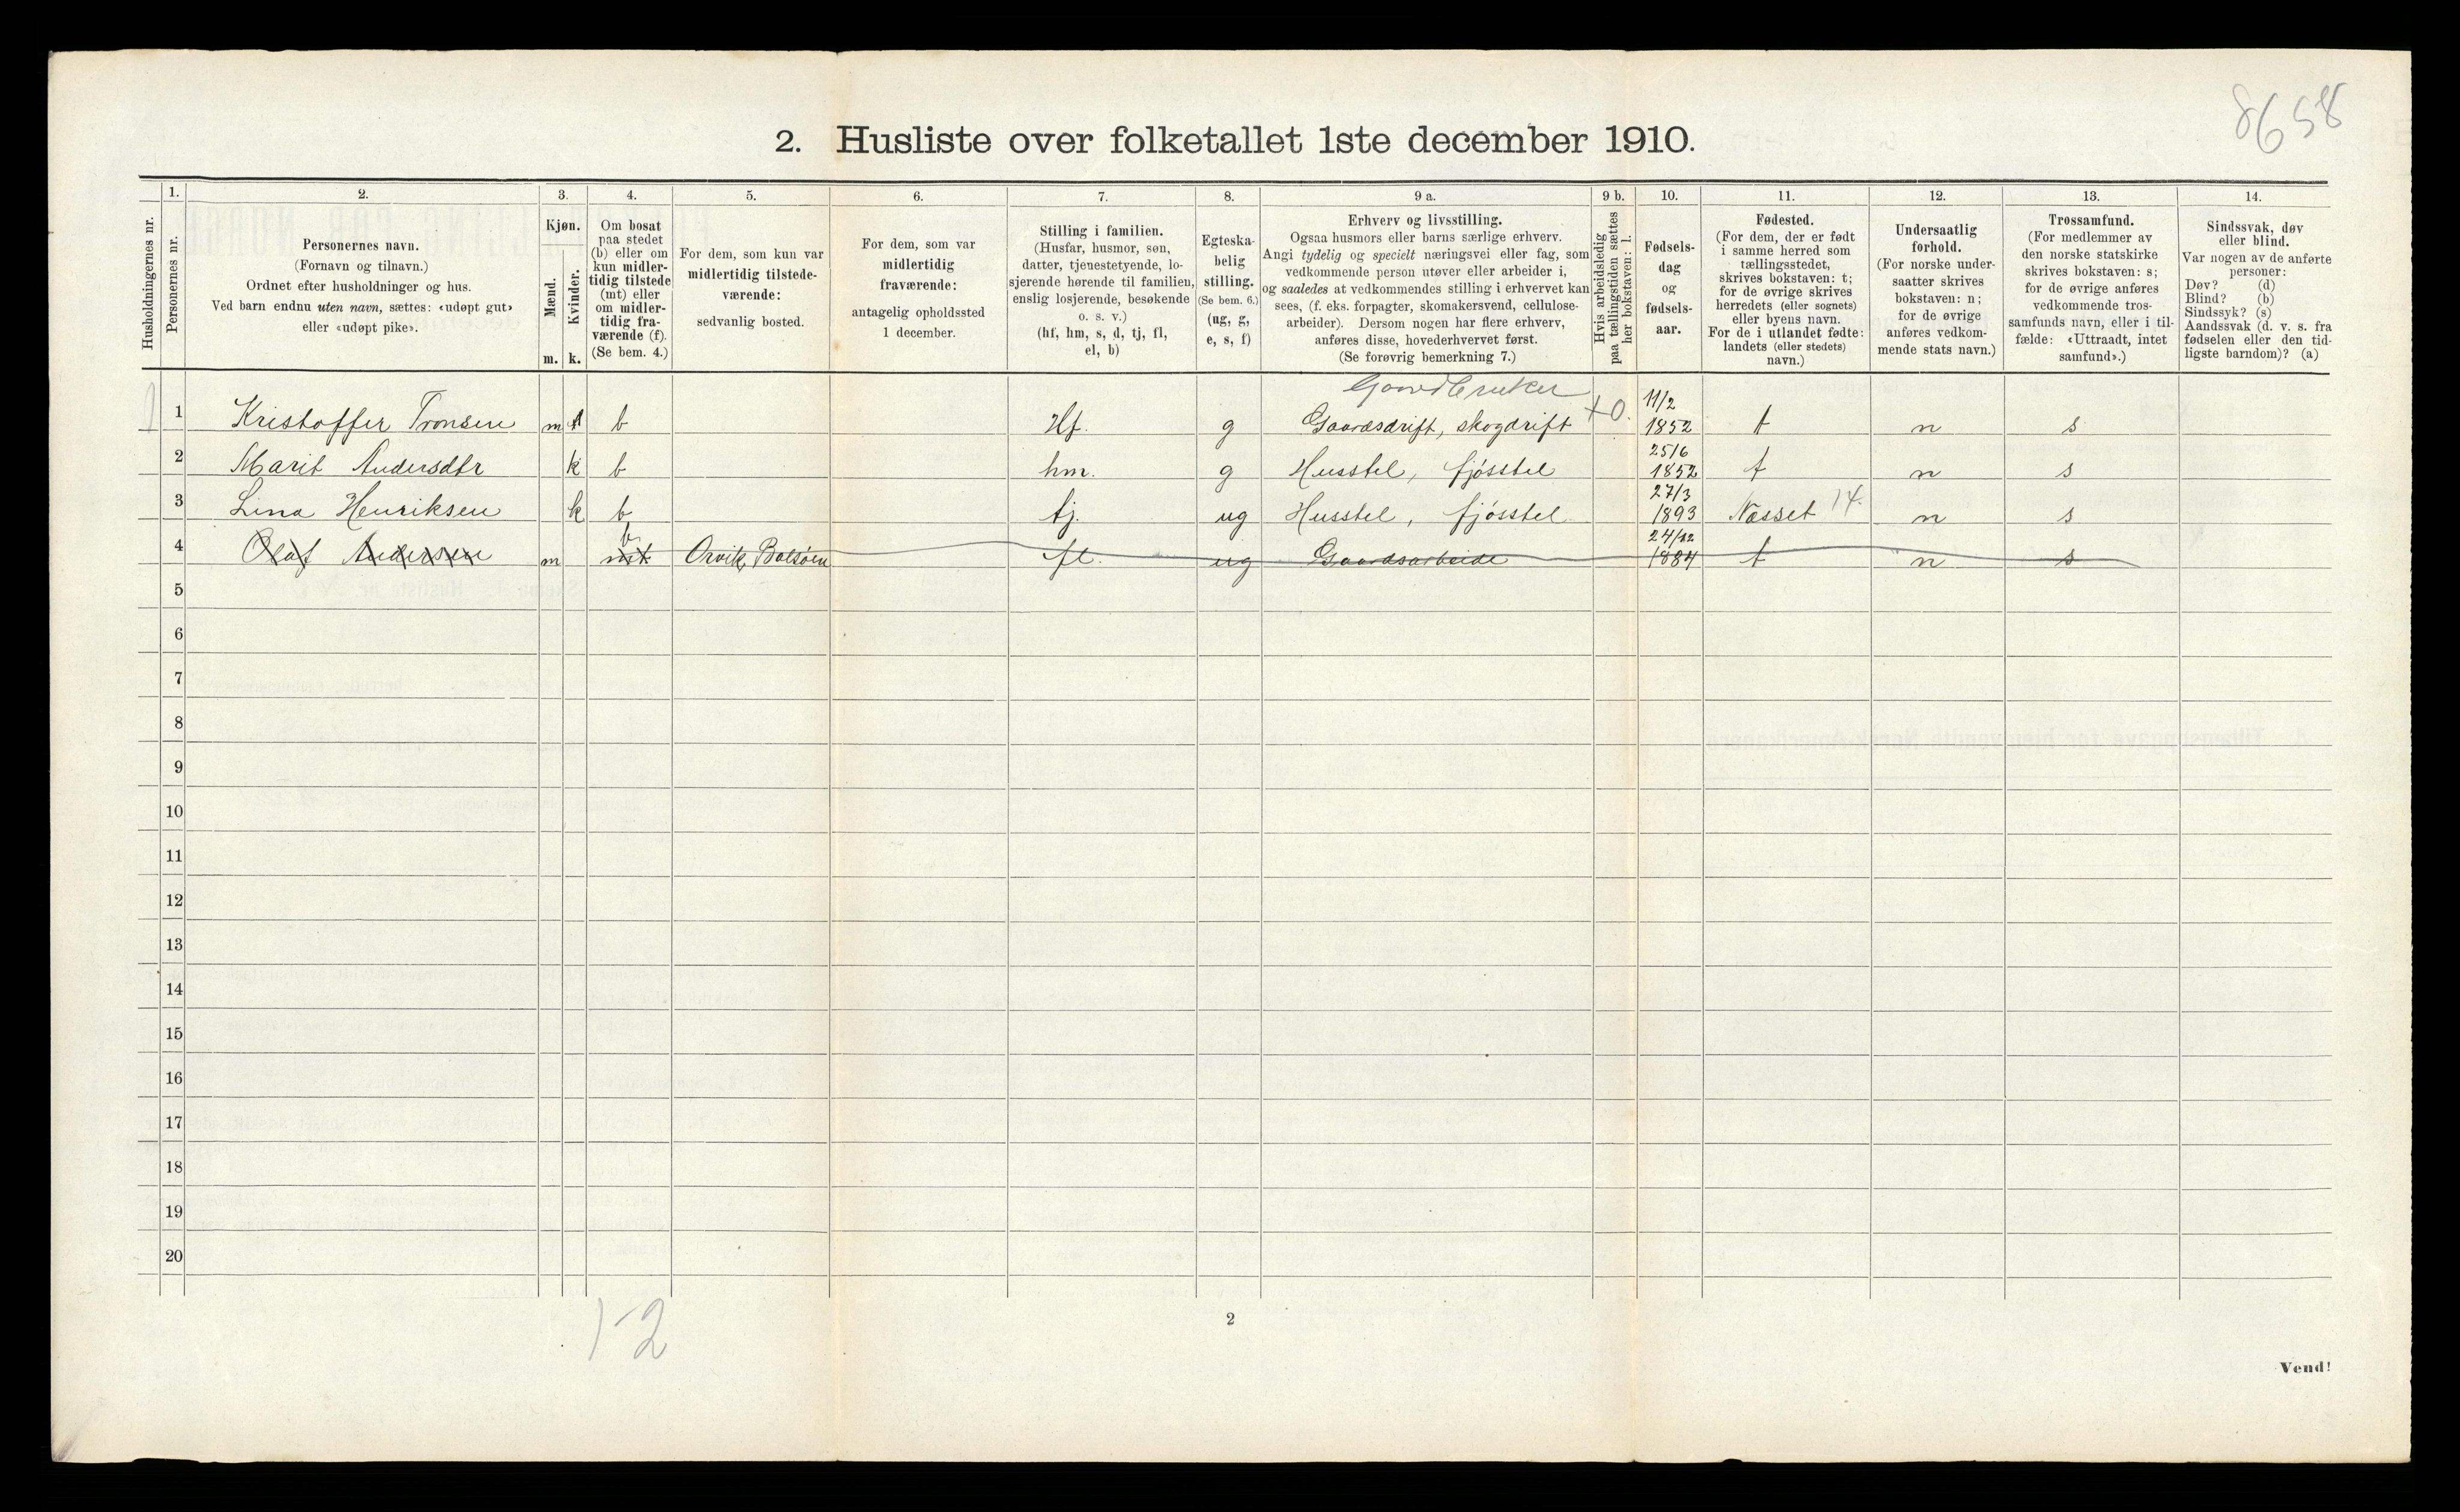 8658
2. Husliste over folketallet 1ste december 1910.
Husholdningernes nr.
1.
Personernes nr.
2.
Personernes navn.
(Fornavn og tilnavn.)
Ordnet efter husholdninger og hus.
Ved barn endnu uten navn, sættes: «udøpt gut»
eller «udøpt pike».
3.
Kjøn.
Mænd.
Kvinder.
m. k.
4.
Om bosat
paa stedet
(b) eller om
kun midler-
tidig tilstede
(mt) eller
om midler-
tidig fra-
værende (f).
(Se bem. 4.)
5.
For dem, som kun var
midlertidig tilstede-
værende:
sedvanlig bosted.
6.
For dem, som var
midlertidig
fraværende:
antagelig opholdssted
1 december.
7.
Stilling i familien.
(Husfar, husmor, søn,
datter, tjenestetyende, lo-
sjerende hørende til familien,
enslig losjerende, besøkende
o. s. v.)
(hf, hm, s, d, tj, fl,
el, b)
8.
Egteska-
belig
stilling.
(Se bem. 6.)
(ug, g,
e, s, f)
9 a.
Erhverv og livsstilling.
Ogsaa husmors eller barns særlige erhverv.
Angi tydelig og specielt næringsvei eller fag, som
vedkommende person utøver eller arbeider i,
og saaledes at vedkommendes stilling i erhvervet kan
sees, (f. eks. forpagter, skomakersvend, cellulose-
arbeider). Dersom nogen har flere erhverv,
anføres disse, hovederhvervet først.
(Se forøvrig bemerkning 7.)
9 b.
Hvis arbeidsledig
paa tællingstiden sættes
her bokstaven: l.
10.
Fødsels-
dag
og
fødsels-
aar.
11.
Fødested.
(For dem, der er født
i samme herred som
tællingsstedet,
skrives bokstaven: t;
for de øvrige skrives
herredets (eller sognets)
eller byens navn.
For de i utlandet fødte:
landets (eller stedets)
navn.)
12.
Undersaatlig
forhold.
(For norske under-
saatter skrives
bokstaven: n;
for de øvrige
anføres vedkom-
mende stats navn.)
13.
Trossamfund.
(For medlemmer av
den norske statskirke
skrives bokstaven: s;
for de øvrige anføres
vedkommende tros-
samfunds navn, eller i til-
fælde: «Uttraadt, intet
samfund».)
14.
Sindssvak, døv
eller blind.
Var nogen av de anførte
personer:
Døv? (d)
Blind? (b)
Sindssyk? (s)
Aandssvak (d. v. s. fra
fødselen eller den tid-
ligste barndom)? (a)
Gaardbruker
1 1 Kristoffer Tronsen m b Hf. g Gaardsdrift, skogdrift +0. 11/2 1852 t n s
2 Marit Andersdtr k b hm. g Husstel, fjøsstel 25/6 1852 t n s
3 Lina Henriksen k b tj. ug Husstel, fjøsstel 27/3 1893 Næsset 14. n s
4 Olaf Andersen m mt b Orvik, Bolsøen fl. ug Gaardsarbeide 24/12 1884 t n s
5
6
7
8
9
10
11
12
13
14
15
16
17
18
19
20
1-2
2
Vend!